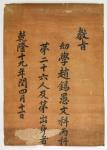 教旨
幼學趙錫愚文科丙科
第二十六人及第出身者
乾隆十九年閏四月十一日